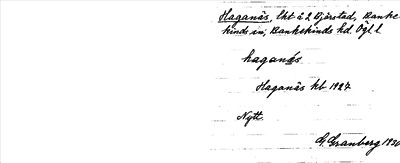 Haganäs, lht å 2 Björstad, Banke-
kinds sn, Bankekinds hd Ögl l.
haganä̀s
Haganäs kb 1927
Nytt.
G. Granberg 1930